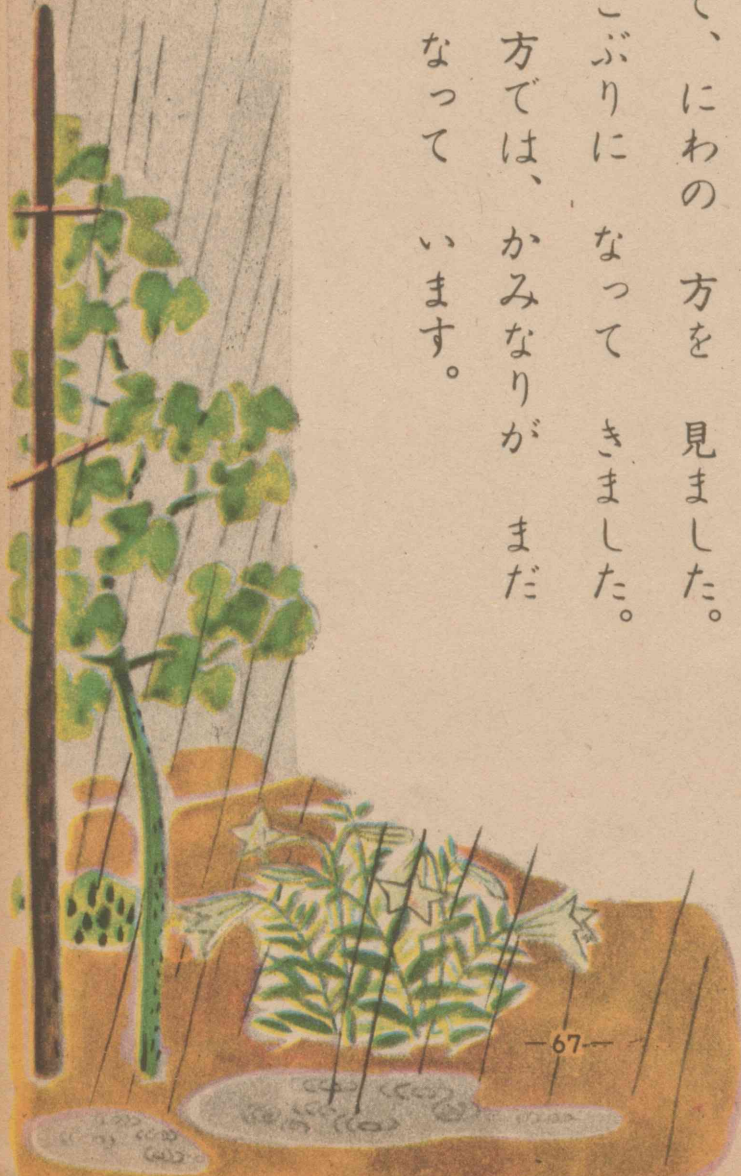 て、 にわの 方を 見ました。
こぶりに なって きました。
方では、かみなりが まだ
なって います。
—67—